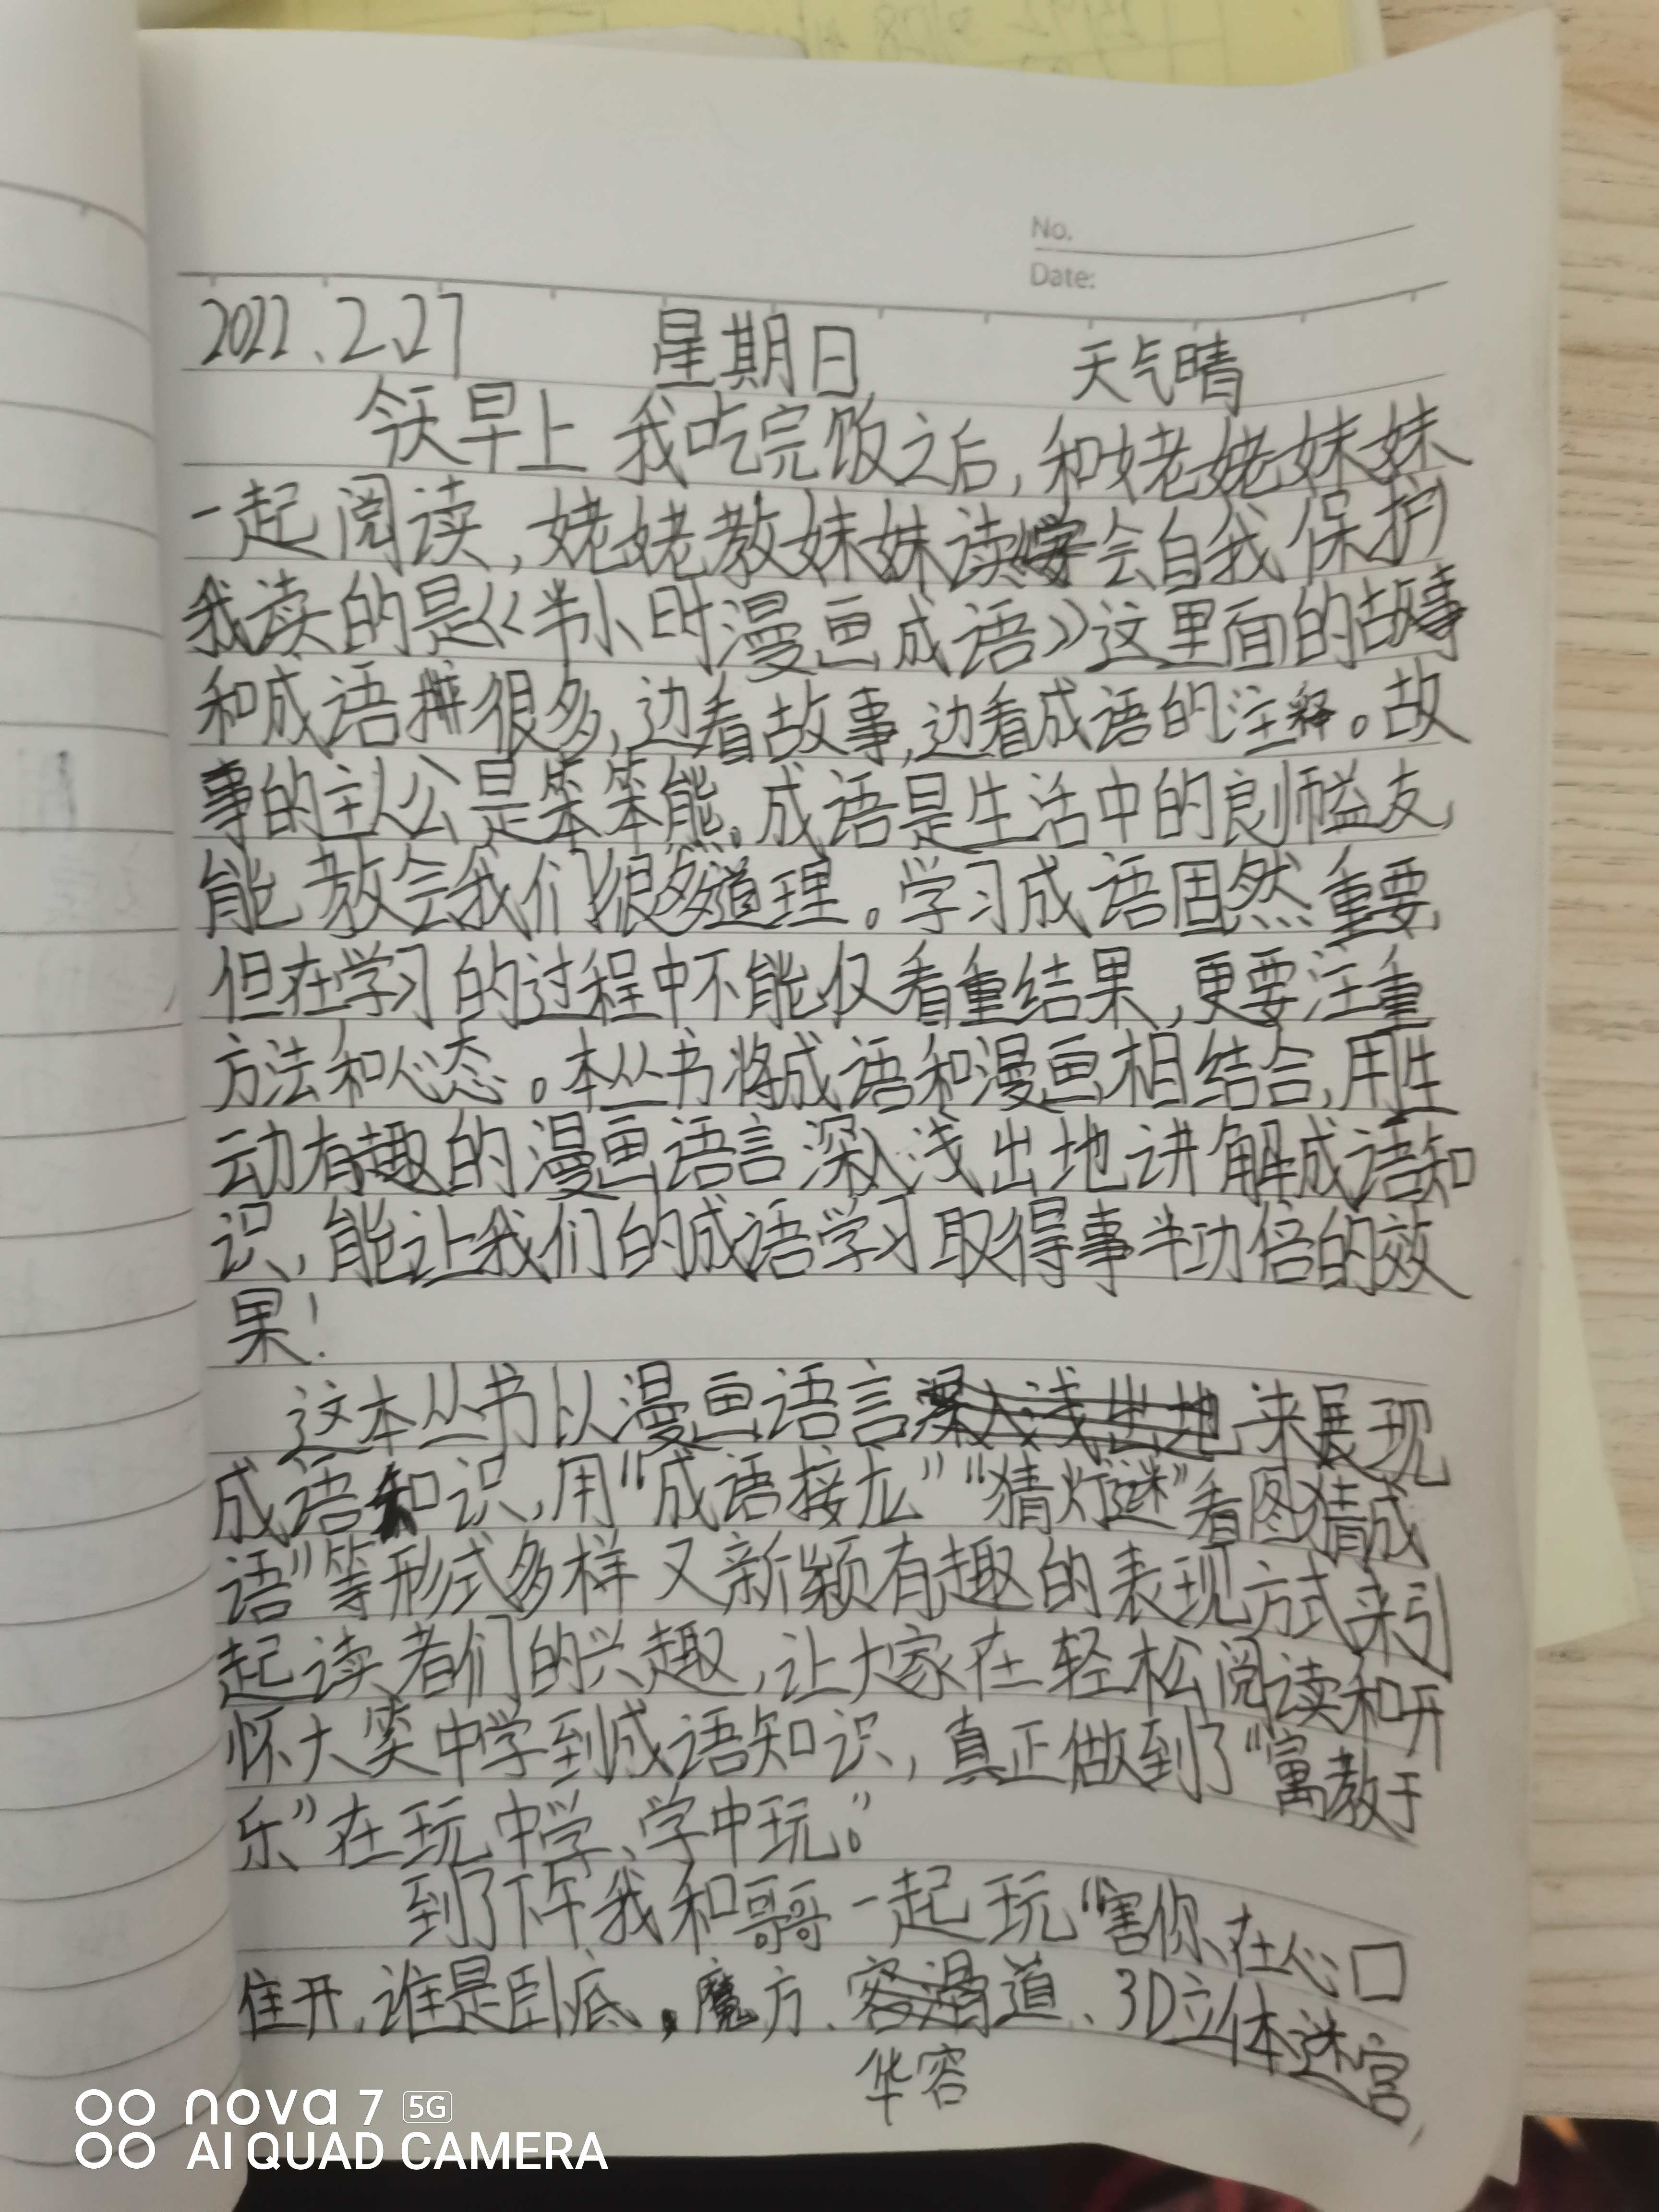 No.
Date:
2022.2.27 星期日 天气晴
今天早上我吃完饭之后,和姥姥妹妹
一起阅读,姥姥教妹妹读学会自我保护
我读的是《半小时漫画成语》这里面的故事
和成语拼很多,边看故事,边看成语的注释。故
事的主人公是笨笨熊。成语是生活中的良师益友,
能教会我们很多道理。学习成语固然重要,
但在学习的过程中不能仅看重结果,更要注重
方法和心态。本丛书将成语和漫画相结合,用生
动有趣的漫画语言深入浅出地讲解成语知
识,能让我们的成语学习取得事半功倍的效
果!
这本丛书以漫画语言深入浅出地来展现
成语知识,用“成语接龙”“猜灯谜”看图猜成
语”等形式多样又新颖有趣的表现方式来引
起读者们的兴趣,让大家在轻松阅读和开
怀大笑中学到成语知识,真正做到了“寓教于
乐”在玩中学、学中玩。”
到了下午我和哥哥一起玩“害你在心口
隹开,谁是卧底,魔方、客滑道、3D立体迷宫,
华容
nova 7 5G
AI QUAD CAMERA